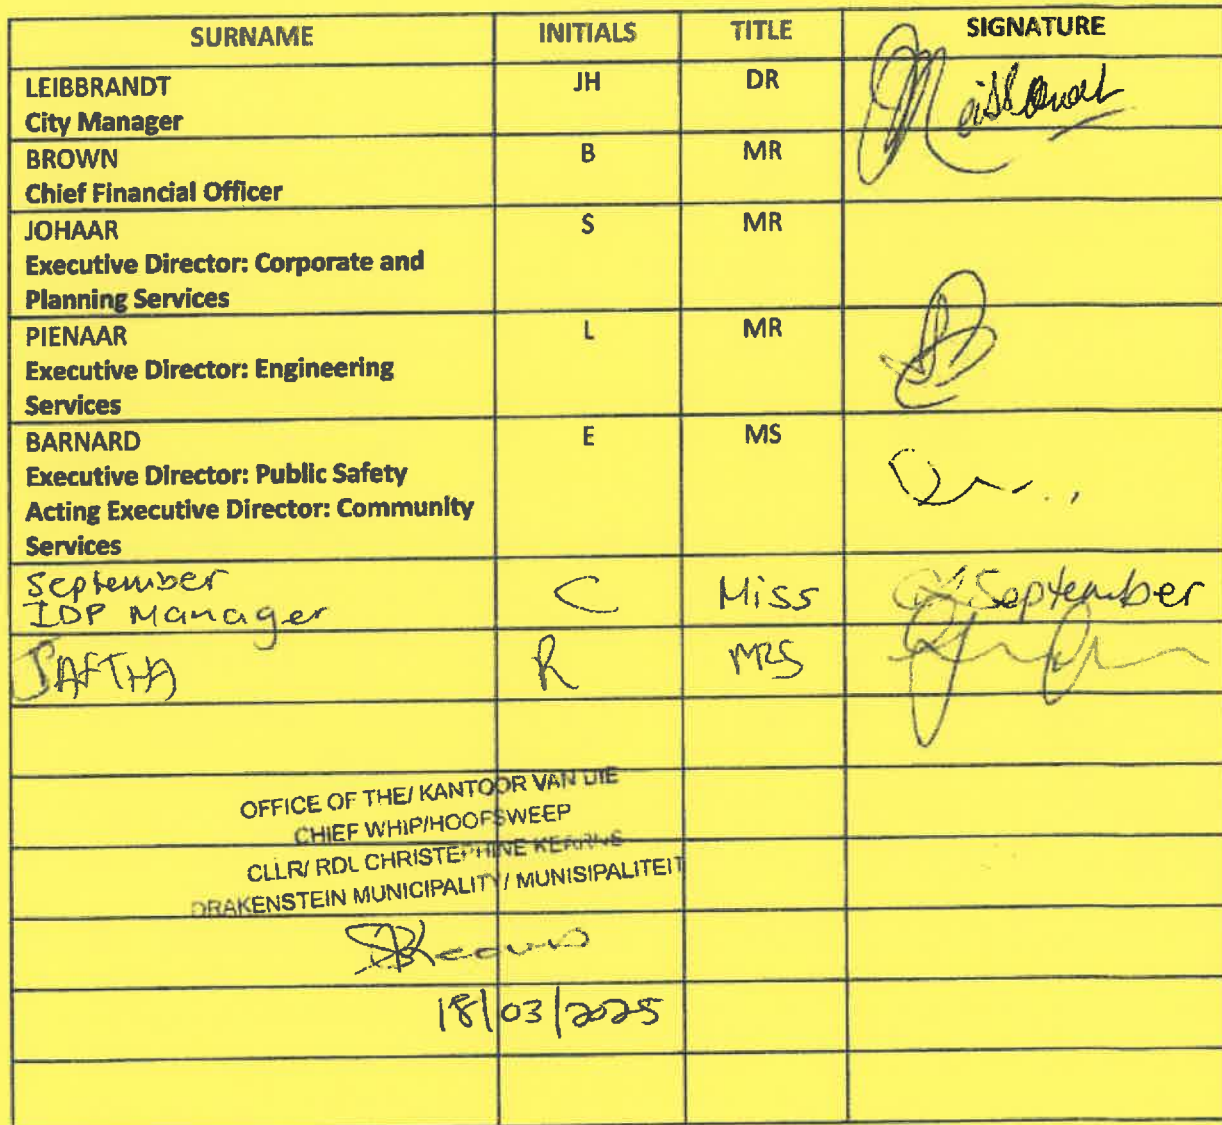 SURNAME INITIALS TITLE SIGNATURE
LEIBBRANDT JH DR
City Manager
BROWN B MR
Chief Financial Officer
JOHAAR S MR
Executive Director: Corporate and
Planning Services
PIENAAR L MR
Executive Director: Engineering
Services
BARNARD E MS
Executive Director: Public Safety
Acting Executive Director: Community
Services
September C Miss September
IDP Manager
JAFTHA R MRS
OFFICE OF THE/ KANTOOR VAN DIE
CHIEF WHIP/HOOFSWEEP
CLLR/ RDL CHRISTEPHINE KEARNS
DRAKENSTEIN MUNICIPALITY / MUNISIPALITEIT
18/03/2025